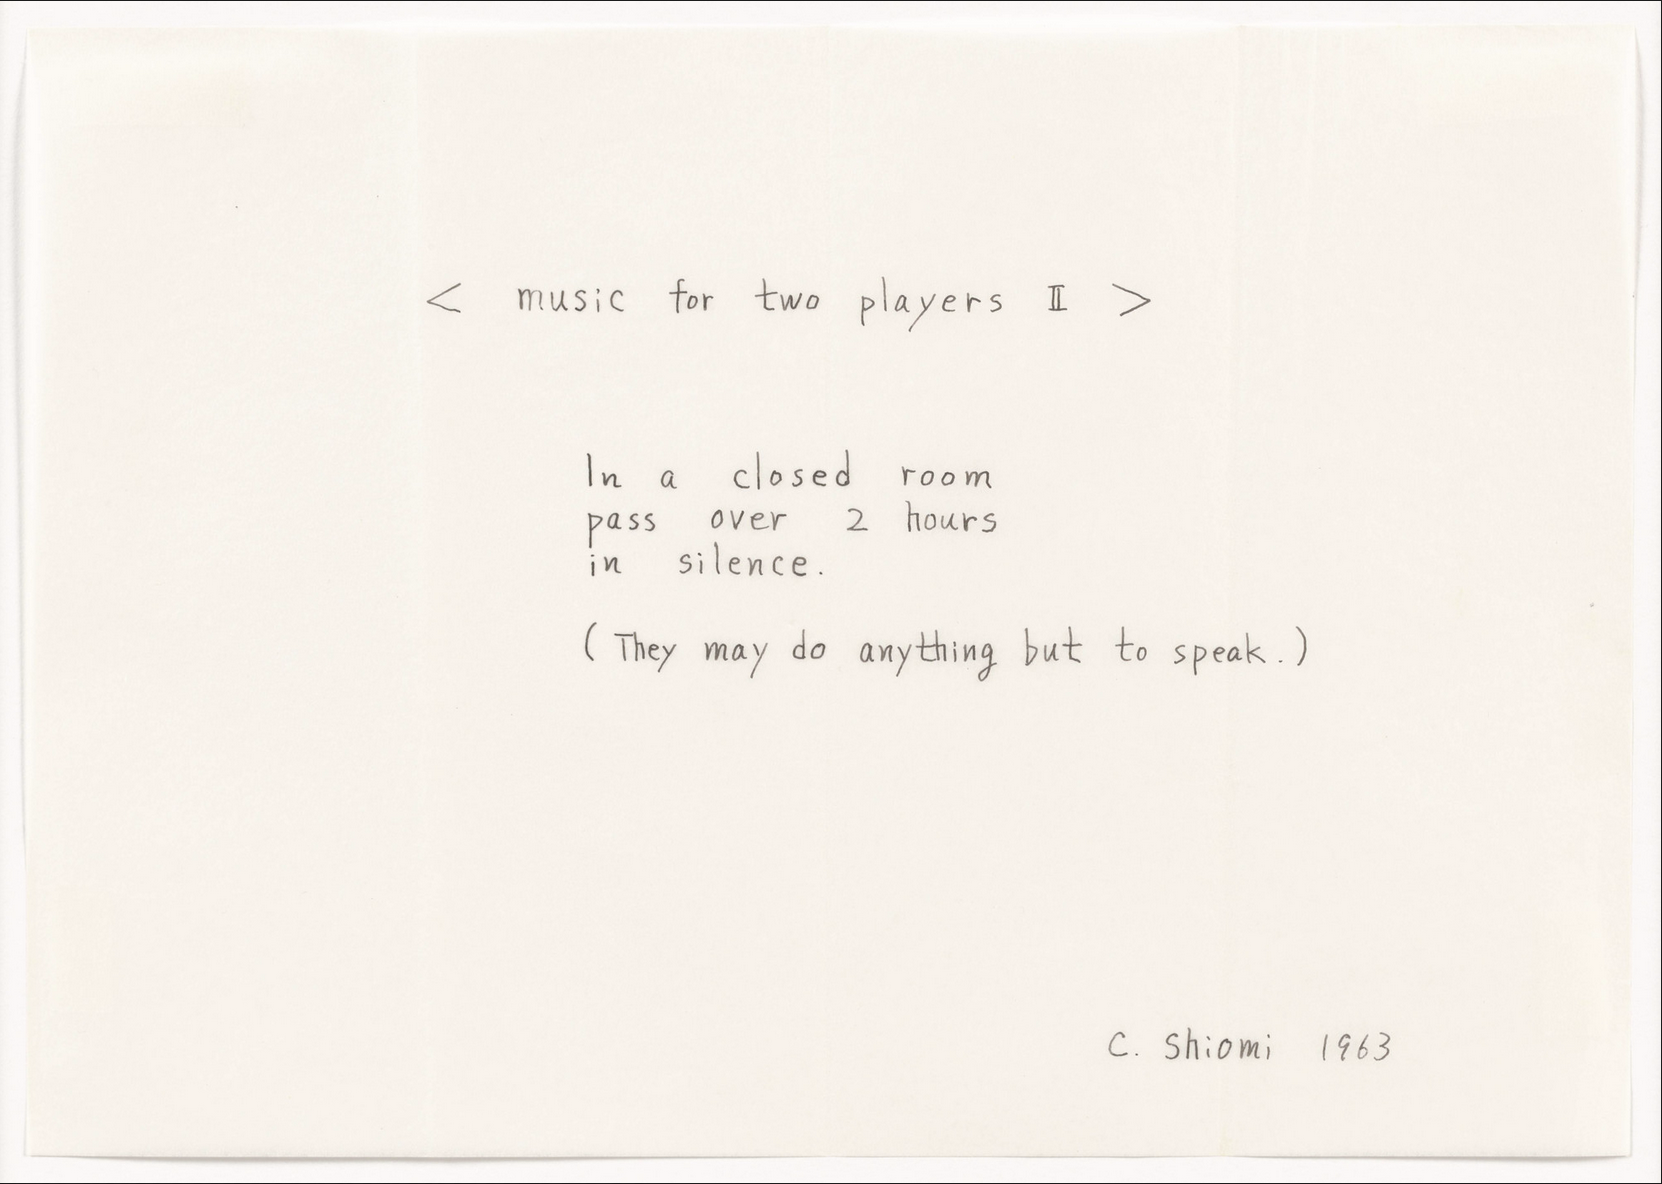 < music for two players II >
In a closed room
pass over 2 hours
in silence.
(They may do anything but to speak.)
C. Shiomi 1963